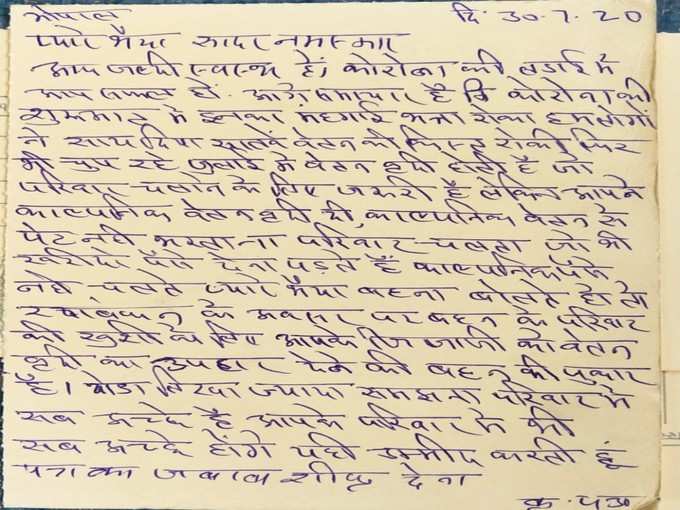 भोपाल दि. 30.7.20
प्यारे भैया सादर नमस्कार
आप जल्दी स्वस्थ हों कोरोना की लडाई में
आप सफल हों. आगे समाचार है कि कोरोना की
शुरूआत में हमारा महगाई भत्ता रोका हम लोगों
ने साथ दिया सातवें वेतन की किस्त रोकी फिर
भी चुप रहे जुलाई में वेतन वृद्धी होती है जो
परिवार चलाने के लिए जरूरी है लेकिन आपने
काल्पनिक वेतन वृद्धी दी, काल्पनिक वेतन से
पेट नही भरता ना परिवार चलता जो भी
खरीदो पैसे देना पड़ते हैं काल्पनिक पैसे
नही चलते प्यारे भैया बहना बोलते हो तो
रक्षाबंधन के अवसर पर बहन के परिवार
की खुशी के लिए आपके जीजाजी को वेतन
वृद्धी का उपहार देने की बहन की पुकार
है। थोडा लिखा ज्यादा समझना परिवार में
सब अच्छे है आपके परिवार में भी
सब अच्छे होंगे यही उम्मीद करती हूं
पत्र का जवाब शीघ्र देना